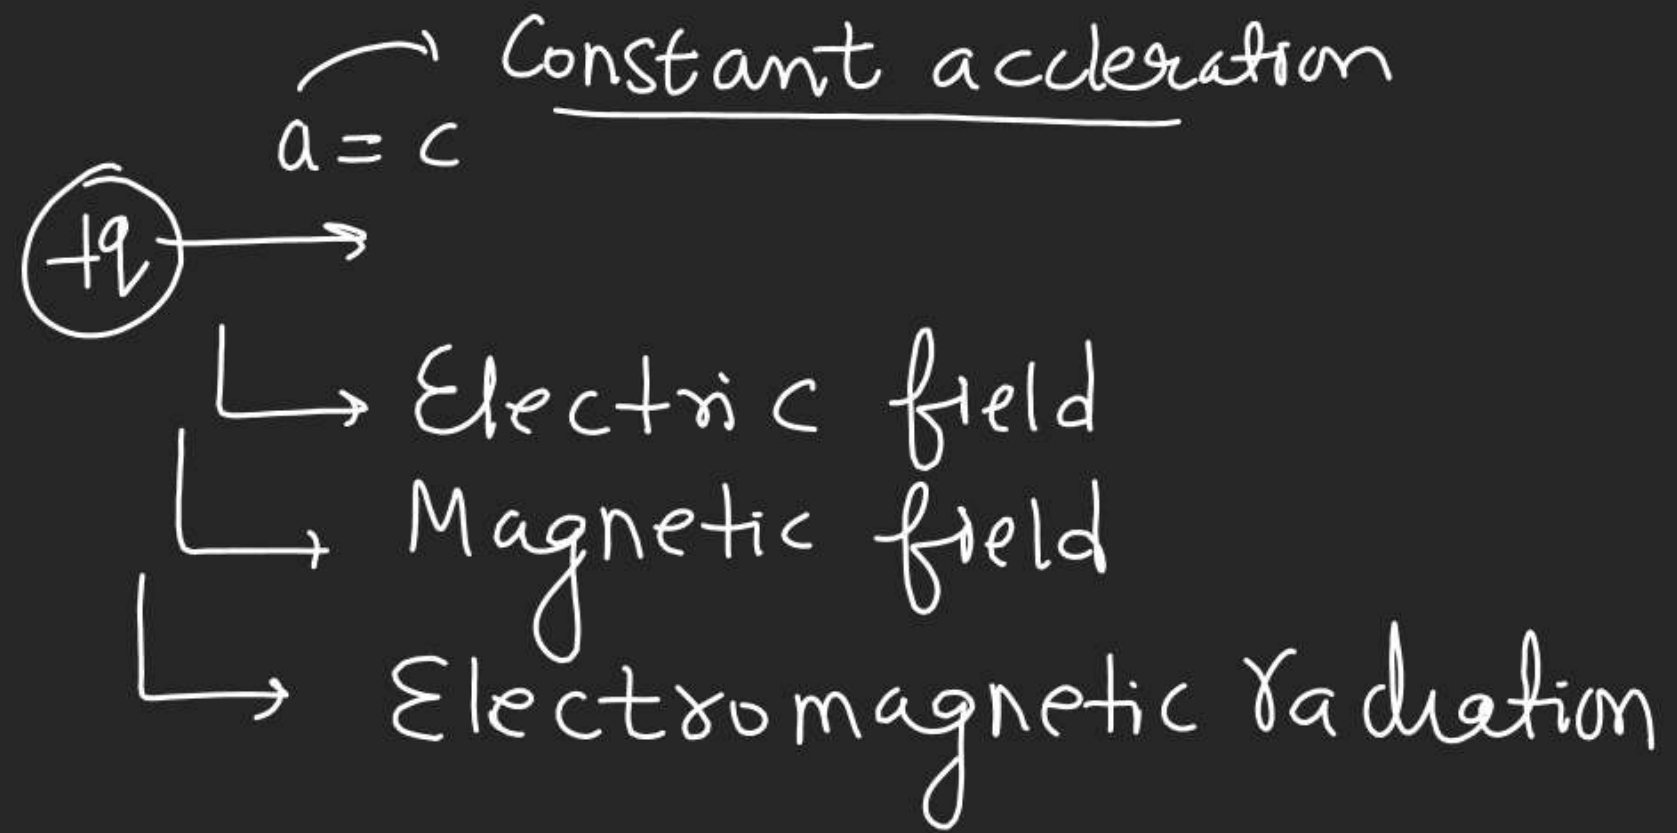 Constant accleration
a = c
+q
Electric field
Magnetic field
Electromagnetic radiation